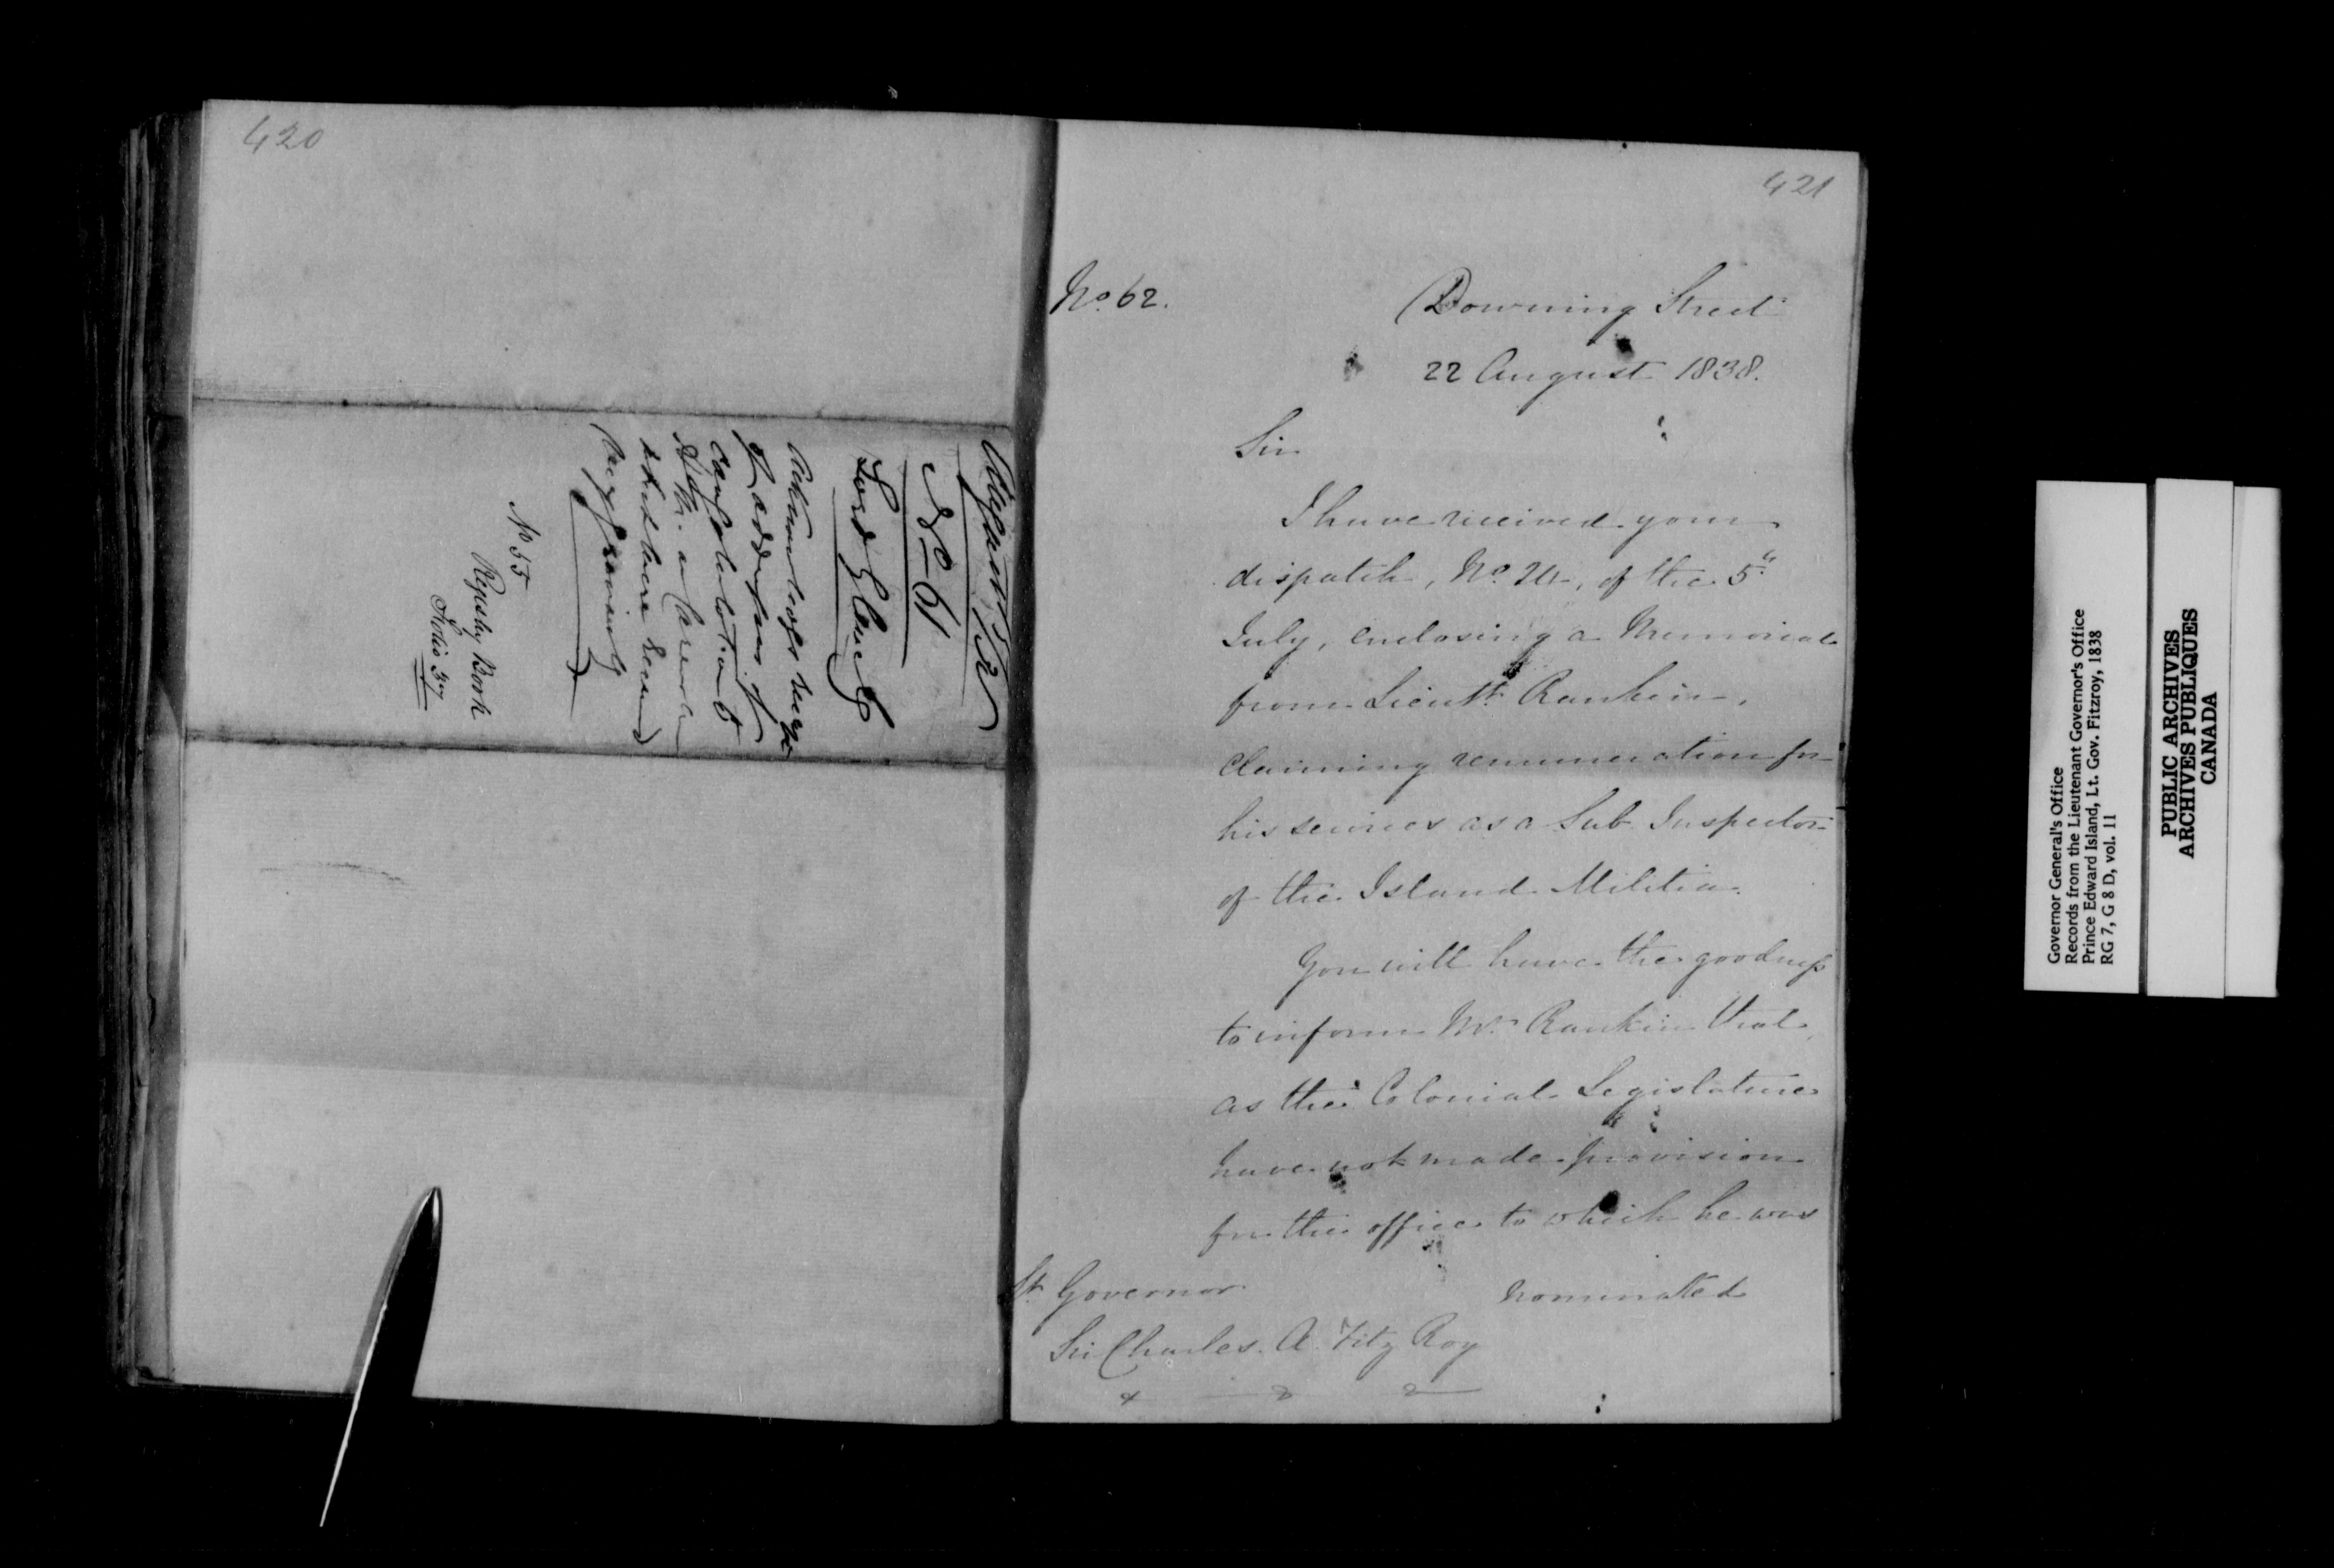 420
August /38
No 61
Lord Glenelg
Acknowledges rece
of addresses of
Congratulation to
H. M.
that have been
very graciously
No 55
Register Book
Folio 37
421
No. 62.
Downing Street
22 August 1838.
Sir
I have received your
dispatch, No. 24, of the 5th
July, enclosing a Memorial
from Lieutt. Rankin,
claiming remuneration for
his services as a Sub Inspector
of the Island Militia.
You will have the goodness
to inform Mr. Rankin that
as the Colonial Legislature
have not made provision
for the office to which he was
nominated
Lt. Governor
Sir Charles. A. Fitz Roy
&
Governor General's Office
Records from the Lieutenant Governor's Office
Prince Edward Island, Lt. Gov. Fitzroy, 1838
RG 7, G 8 D, vol. 11
PUBLIC ARCHIVES
ARCHIVES PUBLIQUES
CANADA